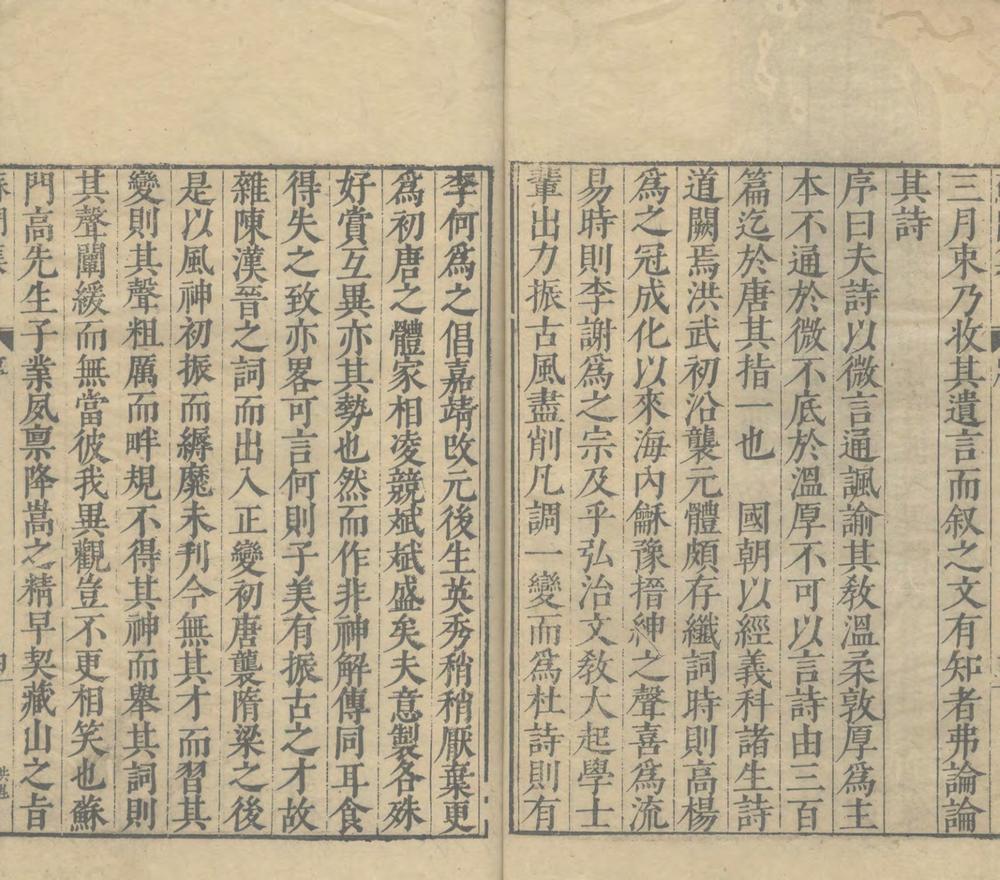 三月束乃收其遺言而叙之文有知者弗論論
其詩
序曰夫詩以微言通諷諭其敎溫柔敦厚爲主
本不通於微不底於溫厚不可以言詩由三百
篇迄於唐其指一也　國朝以經義科諸生詩
道闕焉洪武初沿襲元體頗存纖詞時則高楊
爲之冠成化以來海內龢豫搢紳之聲喜爲流
易時則李謝爲之宗及乎弘治文敎大起學士
輩出力振古風盡削凡調一變而爲杜詩則有
李何爲之倡嘉靖攺元後生英秀稍稍厭棄更
爲初唐之體家相凌競斌斌盛矣夫意製各殊
好賞互異亦其勢也然而作非神解傳同耳食
得失之致亦畧可言何則子美有振古之才故
雜陳漢晉之詞而出入正變初唐襲隋梁之後
是以風神初振而縟靡未刋今無其才而習其
變則其聲粗厲而畔規不得其神而舉其詞則
其聲闡緩而無當彼我異觀豈不更相笑也蘇
門高先生子業夙禀降嵩之精早契藏山之旨